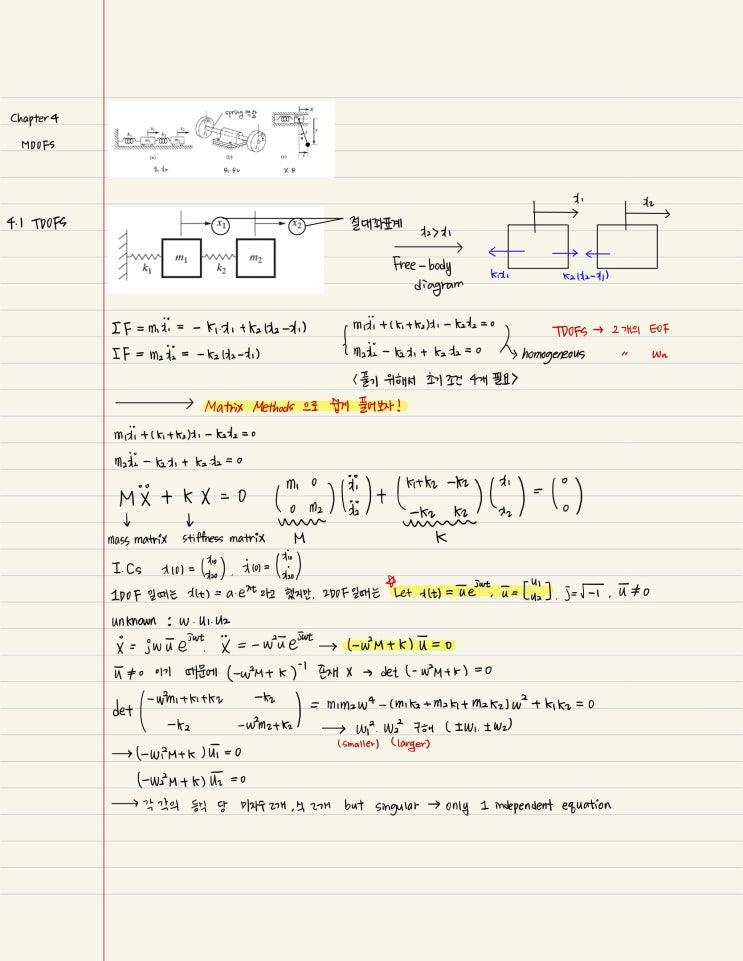 Chapter 4
MDOFS
spring 역할
(a) (b) (c)
x₁, x₂ θ₁, θ₂ x, θ
4.1 TDOFS
x₁ x₂
절대좌표계
k₁ m₁ k₂ m₂
x₂>x₁
Free-body
diagram
x₁ x₂
k₁x₁ k₂(x₂-x₁)
ΣF = m₁ẍ₁ = -k₁x₁ + k₂(x₂-x₁)
ΣF = m₂ẍ₂ = -k₂(x₂-x₁)
m₁ẍ₁ + (k₁+k₂)x₁ - k₂x₂ = 0
m₂ẍ₂ - k₂x₁ + k₂x₂ = 0
homogeneous
TDOFS → 2개의 EOF
〃 wn
<풀기 위해서 초기조건 4개 필요>
→ Matrix Methods 으로 쉽게 풀어보자!
m₁ẍ₁ + (k₁+k₂)x₁ - k₂x₂ = 0
m₂ẍ₂ - k₂x₁ + k₂x₂ = 0
MẌ + KX = 0 (m₁ 0 / 0 m₂)(ẍ₁ / ẍ₂) + (k₁+k₂ -k₂ / -k₂ k₂)(x₁ / x₂) = (0 / 0)
↓ ↓
mass matrix stiffness matrix M K
I.Cs x(0) = (x₁₀ / x₂₀), ẋ(0) = (ẋ₁₀ / ẋ₂₀)
1DOF 일때는 x(t) = a·e^λt 라고 했지만, 2DOF일때는 ☆Let x(t) = ūe^jwt, ū = [u₁ / u₂], j=√-1, ū≠0
unknown : w, u₁, u₂
ẋ = jwūe^jwt, ẍ = -w²ūe^jwt → (-w²M+K)ū = 0
ū≠0 이기 때문에 (-w²M+K)⁻¹ 존재 X → det(-w²M+K) = 0
det (-w²m₁+k₁+k₂ -k₂ / -k₂ -w²m₂+k₂) = m₁m₂w⁴ - (m₁k₂+m₂k₁+m₂k₂)w² + k₁k₂ = 0
→ w₁², w₂² 구해 (±w₁, ±w₂)
(smaller) (larger)
→ (-w₁²M+K)ū₁ = 0
(-w₂²M+K)ū₂ = 0
→ 각각의 등식 당 미지수 2개, 식 2개 but singular → only 1 independent equation